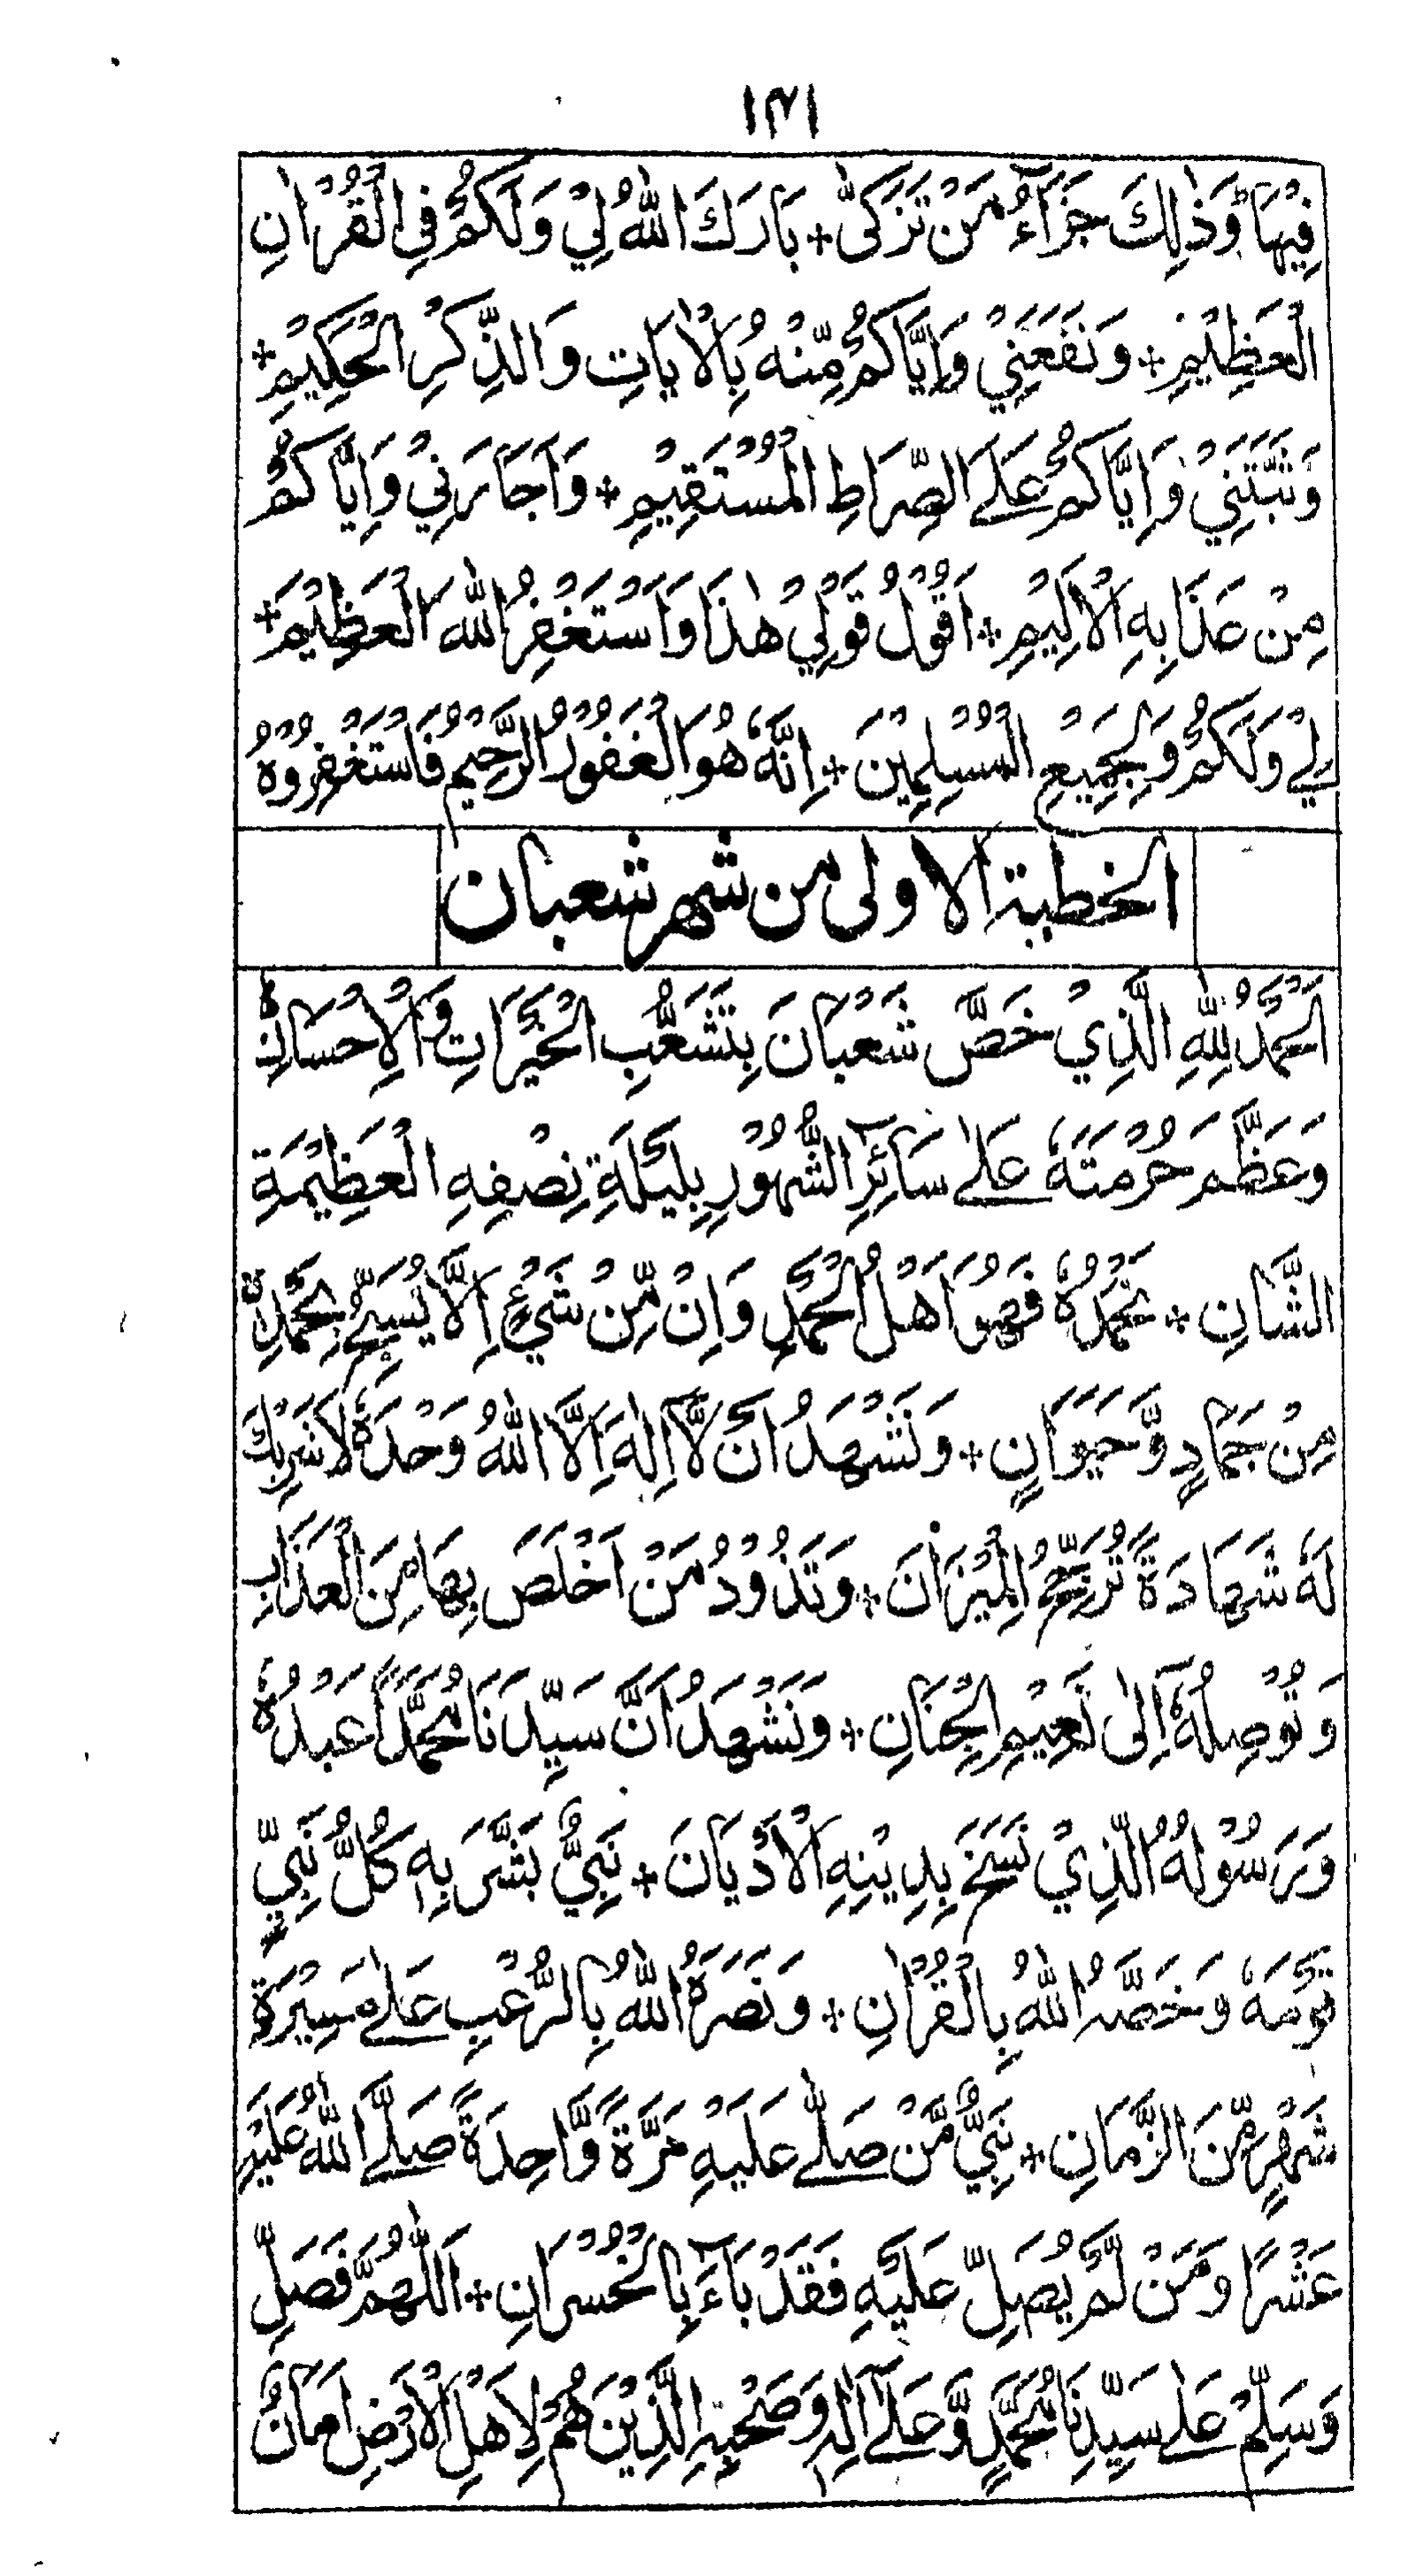 ۱۴۱
فِيْهَا وَذٰلِكَ جَزَآءُ مَنْ تَزَكّٰى + بَارَكَ اللّٰهُ لِيْ وَلَكُمْ فِي الْقُرْاٰنِ
الْعَظِيْمِ + وَنَفَعَنِيْ وَاِيَّاكُمْ مِّنْهُ بِالْاٰيَاتِ وَالذِّكْرِ الْحَكِيْمِ +
وَثَبَّتَنِيْ وَاِيَّاكُمْ عَلَى الصِّرَاطِ الْمُسْتَقِيْمِ + وَاَجَارَنِيْ وَاِيَّاكُمْ
مِنْ عَذَابِهِ الْاَلِيْمِ + اَقُوْلُ قَوْلِيْ هٰذَا وَاَسْتَغْفِرُ اللّٰهَ الْعَظِيْمَ +
لِيْ وَلَكُمْ وَلِجَمِيْعِ الْمُسْلِمِيْنَ + اِنَّهٗ هُوَ الْغَفُوْرُ الرَّحِيْمُ فَاسْتَغْفِرُوْهُ
الخطبة الاولى من شهر شعبان
اَلْحَمْدُ لِلّٰهِ الَّذِيْ خَصَّ شَعْبَانَ بِتَشَعُّبِ الْخَيْرَاتِ وَالْاِحْسَانِ
وَعَظَّمَ حُرْمَتَهٗ عَلٰى سَآئِرِ الشُّهُوْرِ بِلَيْلَةِ نِصْفِهِ الْعَظِيْمَةِ
الشَّانِ + نَحْمَدُهٗ فَهُوَ اَهْلُ الْحَمْدِ وَاِنْ مِّنْ شَيْءٍ اِلَّا يُسَبِّحُ بِحَمْدِهٖ
مِنْ جَمَادٍ وَّحَيَوَانٍ + وَنَشْهَدُ اَنْ لَّآ اِلٰهَ اِلَّا اللّٰهُ وَحْدَهٗ لَا شَرِيْكَ
لَهٗ شَهَادَةً تُرَجِّحُ الْمِيْزَانَ + وَتَذُوْدُ مَنْ اَخْلَصَ بِهَا مِنَ الْعَذَابِ
وَتُوْصِلُهٗٓ اِلٰى نَعِيْمِ الْجِنَانِ + وَنَشْهَدُ اَنَّ سَيِّدَنَا مُحَمَّدًا عَبْدُهٗ
وَرَسُوْلُهُ الَّذِيْ نَسَخَ بِدِيْنِهِ الْاَدْيَانَ + نَبِيٌّ بَشَّرَ بِهٖ كُلُّ نَبِيٍّ
قَوْمَهٗ وَخَصَّهُ اللّٰهُ بِالْقُرْاٰنِ + وَنَصَرَهُ اللّٰهُ بِالرُّعْبِ عَلٰى مَسِيْرَةِ
شَهْرٍ مِّنَ الزَّمَانِ + نَبِيٌّ مَّنْ صَلّٰى عَلَيْهِ مَرَّةً وَّاحِدَةً صَلَّى اللّٰهُ عَلَيْهِ
عَشْرًا وَمَنْ لَّمْ يُصَلِّ عَلَيْهِ فَقَدْ بَآءَ بِالْخُسْرَانِ + اَللّٰهُمَّ فَصَلِّ
وَسَلِّمْ عَلٰى سَيِّدِنَا مُحَمَّدٍ وَّعَلٰٓى اٰلِهٖ وَصَحْبِهِ الَّذِيْنَ هُمْ لِاَهْلِ الْاَرْضِ اَمَانٌ